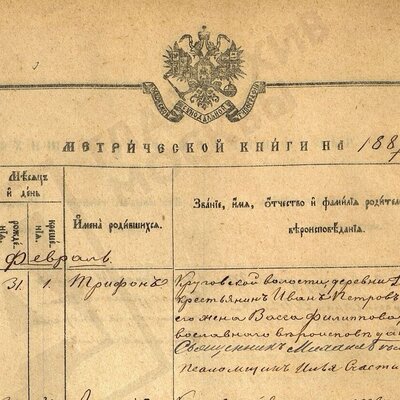 МЕТРИЧЕСКОЙ КНИГИ НА 188
Мѣсяцъ
и день
рожде-
нія.
креще-
нія.
Имена родившихся.
Званіе, имя, отчество и фамилія родител
вѣроисповѣданія.
Февраль
31. 1. Трифонъ
Круговской волости, деревни
крестьянинъ Иванъ Петровъ
его жена Васса Филиппова
вославнаго вѣроисповѣда
Священникъ Михаилъ
псаломщикъ Илья